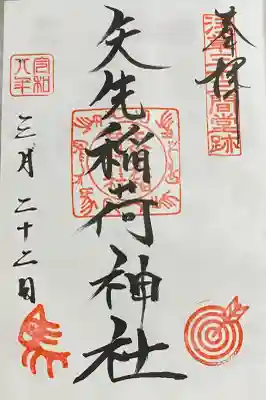 奉拝
浅草三十三間堂跡
矢先稲荷神社
令和
三月二十二日